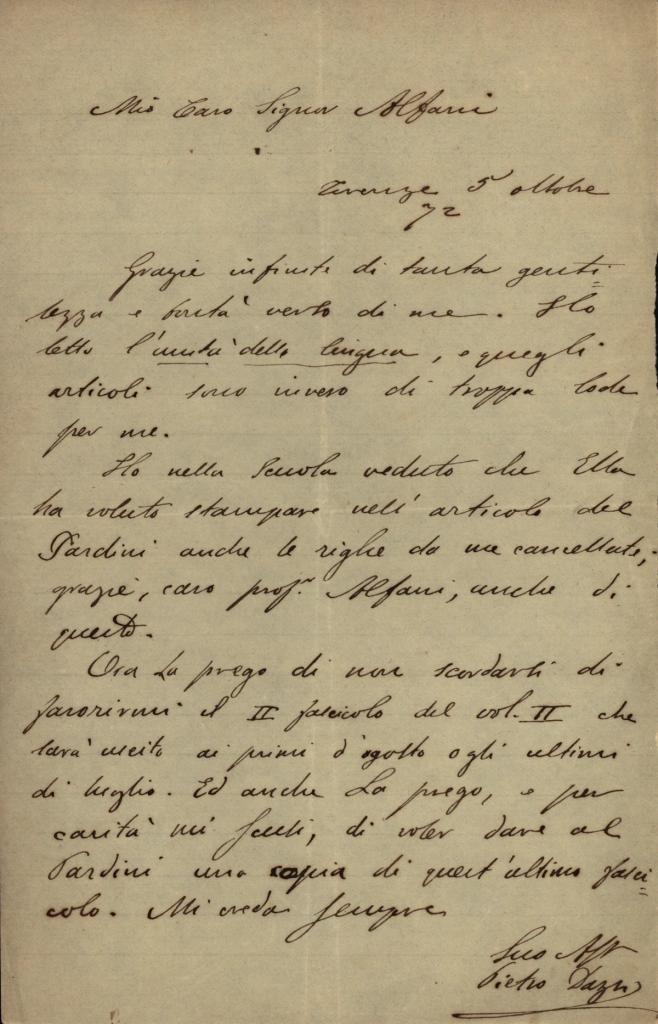 Mio Caro Signor Alfani
Firenze 5 ottobre
72
Grazie infinite di tanta genti=
lezza e bontà verso di me. Ho
letto l'unità della lingua, e quegli
articoli sono invero di troppa lode
per me.
Ho nella Scuola veduto che Ella
ha voluto stampare nell'articolo del
Pardini anche le righe da me cancellate,
grazie, caro prof.r Alfani, anche di
questo.
Ora La prego di non scordarsi di
favorirmi il II fascicolo del vol. II che
sarà uscito ai primi d'agosto o gli ultimi
di luglio. Ed anche La prego, e per
carità mi scusi, di voler dare al
Pardini una copia di quest'ultimo fasci=
colo. Mi creda sempre
Suo Aff
Pietro Dazzi